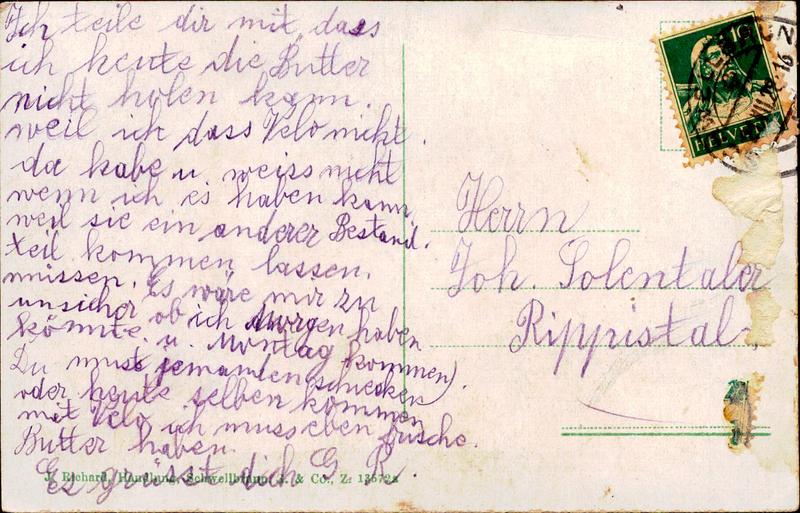 Ich teile dir mit, dass
ich heute die Butter
nicht holen kann.
weil ich dass Velo nicht.
da habe u. weiss nicht
wenn ich es haben kann
weil sie ein anderer Bestand.
teil kommen lassen.
müssen. Es wäre mir zu
unsicher ob ich Morgen haben
könnte. u. Montag kommen).
Du must jemanden schicken
oder heute selben kommen
mit Velo ich muss eben frische.
Butter haben.
Es grüsst dich G. R.
J. Richard, Handlung, Schwellbrunn. J. & Co., Z: 13572a
HELVETIA
Herrn
Joh. Solentaler
Rippistal.